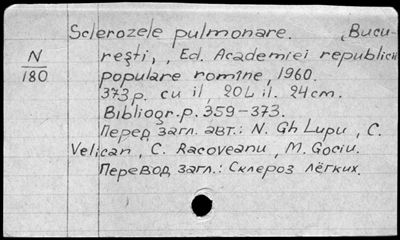 Sclerozele pulmonare. Bucu-
N
180
reşti, , Ed. Academiei republicii
populare romîne, 1960.
373 p. cu il, 20 L il. 24 cm.
Bibliogr. p. 359-373.
Перед загл. авт.: N. Gh Lupu, C.
Velican, C. Racoveanu, M. Gociu.
Перевод загл.: Склероз лёгких.